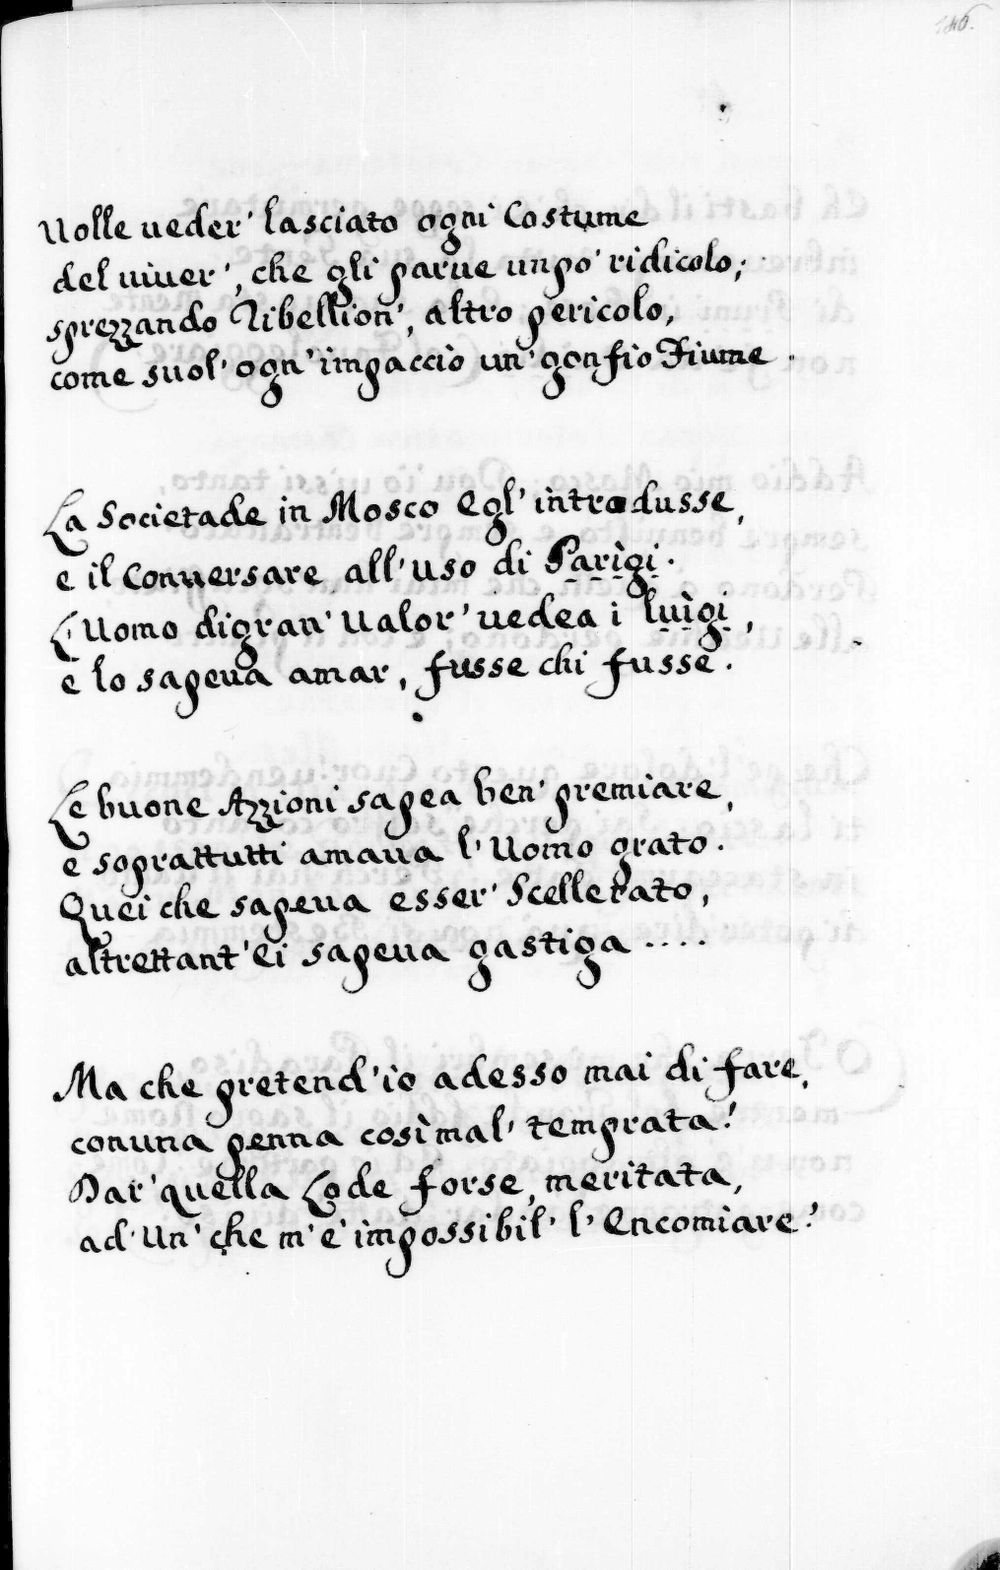 146.
Uolle ueder' lasciato ogni Costume
del uiuer', che gli parue unpo' ridicolo;
sprezzando Ribellion', altro pericolo,
come suol' ogn' impaccio un' gonfio Fiume.
La Societade in Mosco Egl' introdusse,
e il Conuersare all'uso di Parìgi.
L'Uomo digran' Ualor' uedea i luìgi,
e lo sapeua amar, fusse chi fusse.
Le buone Azzioni sapea ben' premiare,
e soprattutti amaua l'Uomo grato.
Quei che sapeua esser' Scellerato,
altrettant' Ei sapeua gastiga ....
Ma che pretend'io adesso mai di fare,
conuna penna cosìmal' temprata?
Dar' quella Lode forse, meritata,
ad' Un' che m'è impossibil' l'Encomiare?